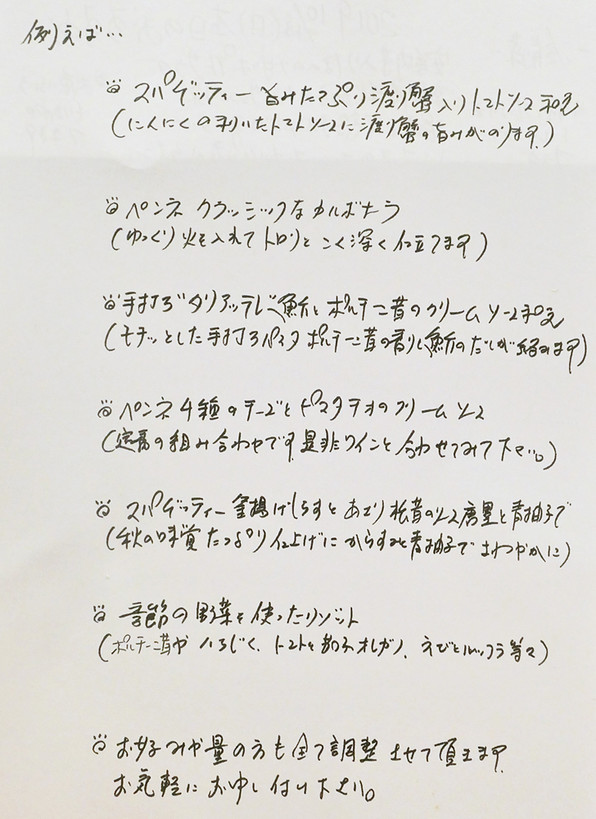 例えば…
スパゲッティー 旨みたっぷり渡り蟹入りトマトソース和え
(にんにくの利いたトマトソースに渡り蟹の旨みがのります)
ペンネ クラッシックなカルボナーラ
(ゆっくり火を入れてトロリとこく深く仕立てます)
手打ちタリアッテレ 鮮魚とポルチーニ茸のクリームソース和え
(モチッとした手打ちパスタ ポルチーニ茸の香りと のだしが絡みます)
ペンネ 4種のチーズとピスタチオのクリームソース
(定番の組み合わせです。是非ワインと合わせてみて下さい。)
スパゲッティー 釜揚げしらすとあさり 松茸のソース 唐墨と青柚子で
(秋の味覚たっぷり 仕上げにからすみと青柚子でさわやかに)
季節の野菜を使ったリゾット
(ポルチーニ茸やいちじく、トマトと オレガノ、えびとルッコラ等々)
お好みや量の方も全て調整させて頂きます。
お気軽にお申し付け下さい。